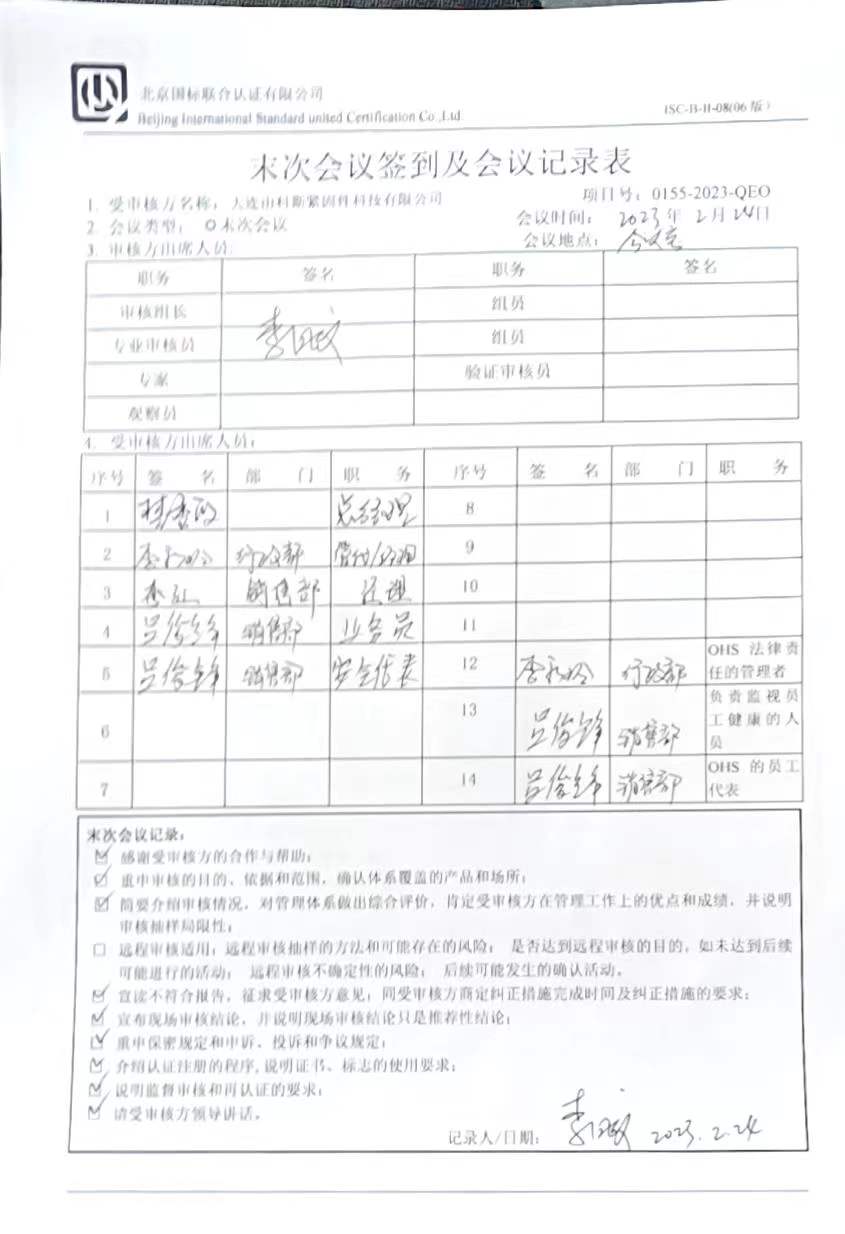 北京国标联合认证有限公司
Beijing International Standard united Certification Co.,Ltd.
ISC-B-II-08(06版)
末次会议签到及会议记录表
项目号：0155-2023-QEO
1. 受审核方名称：大连山科斯紧固件科技有限公司
会议时间：2023年2月24日
2. 会议类型：末次会议
会议地点：会议室
3. 审核方出席人员：
职务 签名 职务 签名
审核组长 组员
专业审核员 组员
专家 验证审核员
观察员
4. 受审核方出席人员：
序号 签名 部门 职务 序号 签名 部门 职务
1 总经理 8
2 行政部 管代/经理 9
3 销售部 经理 10
4 吕俊锋 销售部 业务员 11
5 吕俊锋 销售部 安全代表 12 行政部 OHS 法律责任的管理者
6 13 吕俊锋 销售部 负责监视员工健康的人员
7 14 吕俊锋 销售部 OHS 的员工代表
末次会议记录：
☑ 感谢受审核方的合作与帮助；
☑ 重申审核的目的、依据和范围，确认体系覆盖的产品和场所；
☑ 简要介绍审核情况，对管理体系做出综合评价，肯定受审核方在管理工作上的优点和成绩，并说明
审核抽样局限性；
☐ 远程审核适用：远程审核抽样的方法和可能存在的风险； 是否达到远程审核的目的，如未达到后续
可能进行的活动； 远程审核不确定性的风险； 后续可能发生的确认活动。
☑ 宣读不符合报告，征求受审核方意见；同受审核方商定纠正措施完成时间及纠正措施的要求；
☑ 宣布现场审核结论，并说明现场审核结论只是推荐性结论；
☑ 重申保密规定和申诉、投诉和争议规定；
☑ 介绍认证注册的程序,说明证书、标志的使用要求；
☑ 说明监督审核和再认证的要求；
☑ 请受审核方领导讲话。
记录人/日期： 2023.2.24